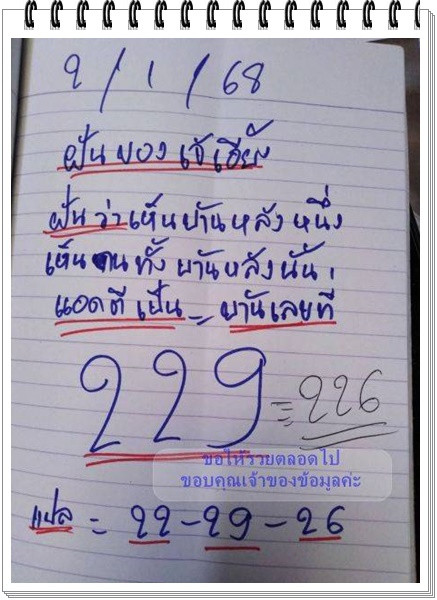 2/1/68
ฝันของเจ๊เฮียง
ฝันว่าเห็นบ้านหลังหนึ่ง
เห็นคนทั้งบ้านหลังนั้น
แอดตีเป็น = บ้านเลขที่
229 = 226
ขอให้รวยตลอดไป
ขอบคุณเจ้าของข้อมูลค่ะ
แปล = 22-29-26